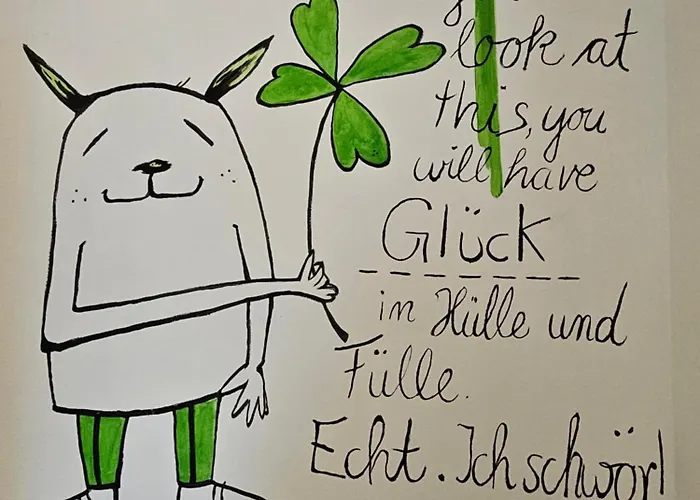 look at
this, you
will have
Glück
in Hülle und
Fülle.
Echt. Ich schwör